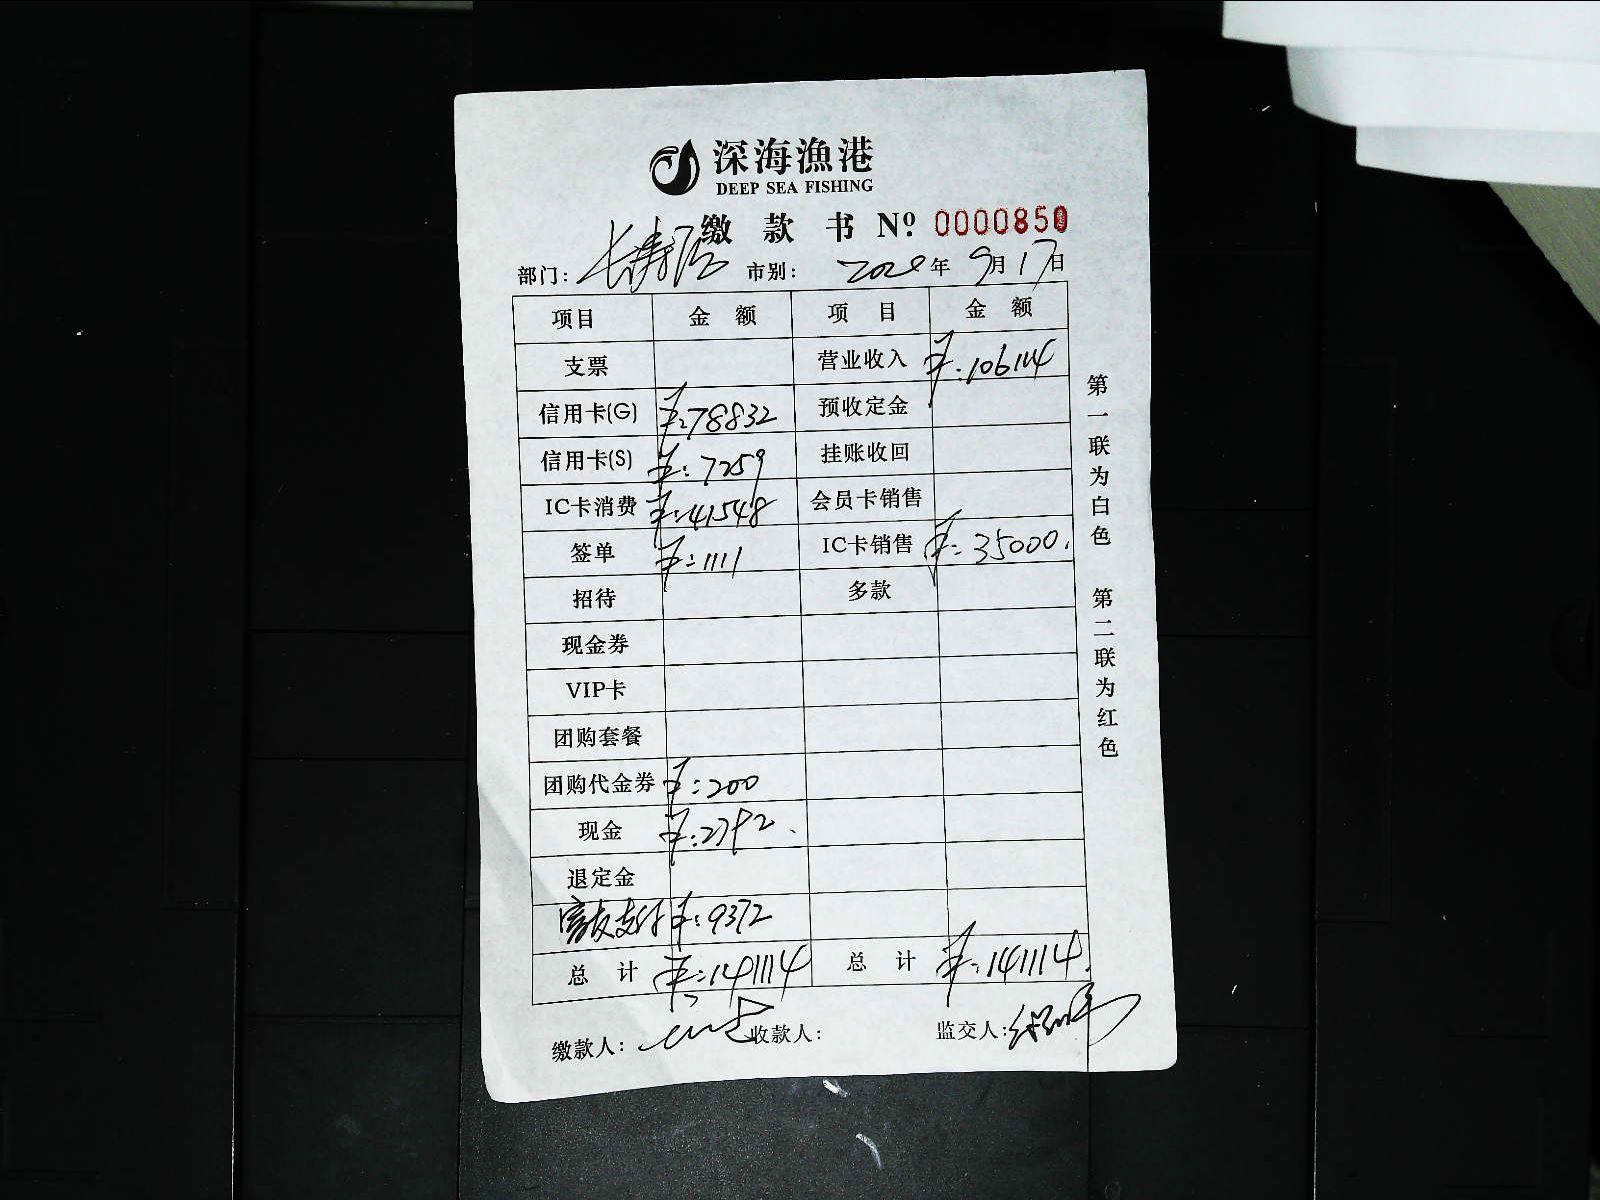 深海漁港
DEEP SEA FISHING
缴款书 Nº: 0000850
部门: 长寿路 市别: 2020年 9月17日
项目 金额 项目 金额
支票 营业收入 ¥:106114
信用卡(G) ¥:78832 预收定金
信用卡(S) ¥:7259 挂账收回
IC卡消费 ¥:41548 会员卡销售
签单 ¥:1111 IC卡销售 ¥:35000.
招待 多款
现金券
VIP卡
团购套餐
团购代金券 ¥:200
现金 ¥:2792.
退定金
支付 ¥:9372
总计 ¥:141114 总计 ¥:141114.
缴款人: 收款人: 监交人:
第一联为白色 第二联为红色